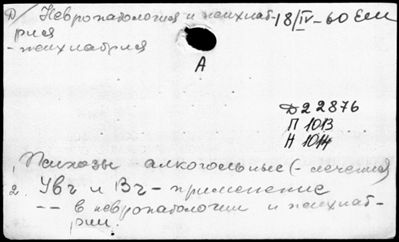 Д/ Невропатология и психиат- 18/IV-60 Емм
рия
- психиатрия
А
Д22876
П 1013
Н 1014
1, Психозы алкогольные (-лечение)
2. Увч и Вч - применение
-- в невропатологии и психиат-
рии.